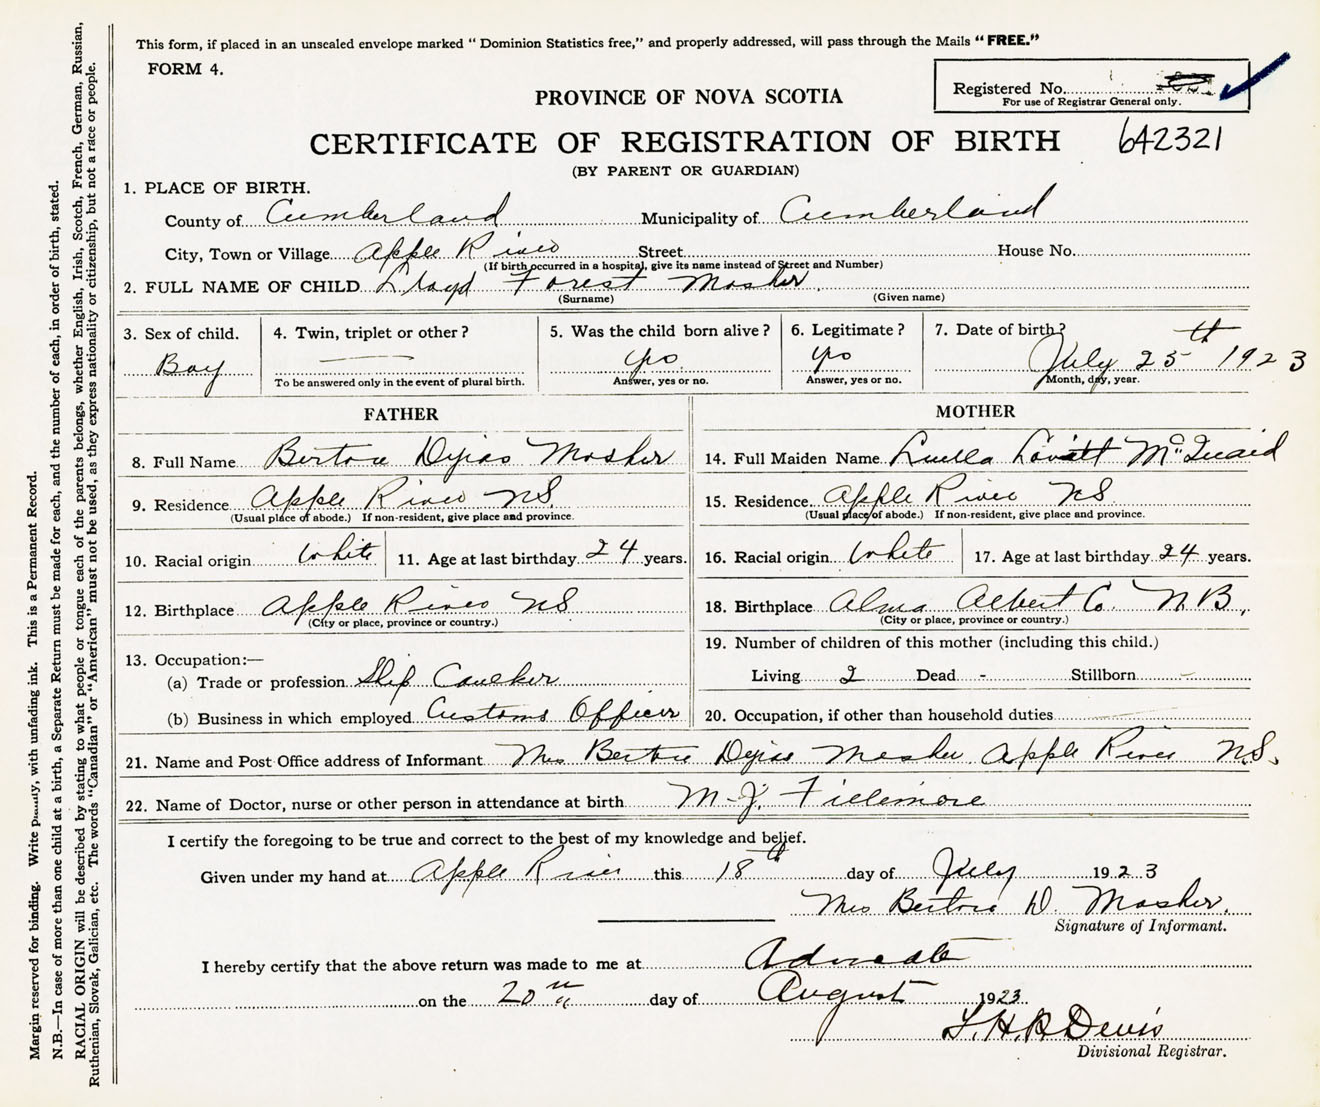 This form, if placed in an unsealed envelope marked "Dominion Statistics free," and properly addressed, will pass through the Mails "FREE."
FORM 4.
Registered No.
For use of Registrar General only.
PROVINCE OF NOVA SCOTIA
CERTIFICATE OF REGISTRATION OF BIRTH 642321
(BY PARENT OR GUARDIAN)
1. PLACE OF BIRTH.
County of Cumberland Municipality of Cumberland
City, Town or Village Apple River Street House No.
(If birth occurred in a hospital, give its name instead of Street and Number)
2. FULL NAME OF CHILD Lloyd Forest Mosher
(Surname) (Given name)
3. Sex of child. 4. Twin, triplet or other? 5. Was the child born alive? 6. Legitimate? 7. Date of birth?
Boy yes yes July 25th 1923
To be answered only in the event of plural birth. Answer, yes or no. Answer, yes or no. Month, day, year.
FATHER
8. Full Name Berton Mosher
9. Residence Apple River NS
(Usual place of abode.) If non-resident, give place and province.
10. Racial origin White 11. Age at last birthday 24 years.
12. Birthplace Apple River NS
(City or place, province or country.)
13. Occupation:—
(a) Trade or profession Ship Caulker
(b) Business in which employed Customs Officer
MOTHER
14. Full Maiden Name Luella Lovitt McQuaid
15. Residence Apple River NS
(Usual place of abode.) If non-resident, give place and province.
16. Racial origin White 17. Age at last birthday 24 years.
18. Birthplace Alma Albert Co. N.B.,
(City or place, province or country.)
19. Number of children of this mother (including this child.)
Living 2 Dead - Stillborn -
20. Occupation, if other than household duties
21. Name and Post Office address of Informant Mrs Berton Mosher Apple River N.S.
22. Name of Doctor, nurse or other person in attendance at birth M. J. Fillimore
I certify the foregoing to be true and correct to the best of my knowledge and belief.
Given under my hand at Apple River this 18th day of July 1923
Mrs Berton D. Mosher.
Signature of Informant.
I hereby certify that the above return was made to me at Advocate
on the 20 day of August 1923
L. H. Devis
Divisional Registrar.
Margin reserved for binding. Write with unfading ink. This is a Permanent Record.
N.B.—In case of more than one child at a birth, a Separate Return must be made for each, and the number of each, in order of birth, stated.
RACIAL ORIGIN will be described by stating to what people or tongue each of the parents belongs, whether English, Irish, Scotch, French, German, Russian,
Ruthenian, Slovak, Galician, etc. The words "Canadian" or "American" must not be used, as they express nationality or citizenship, but not a race or people.